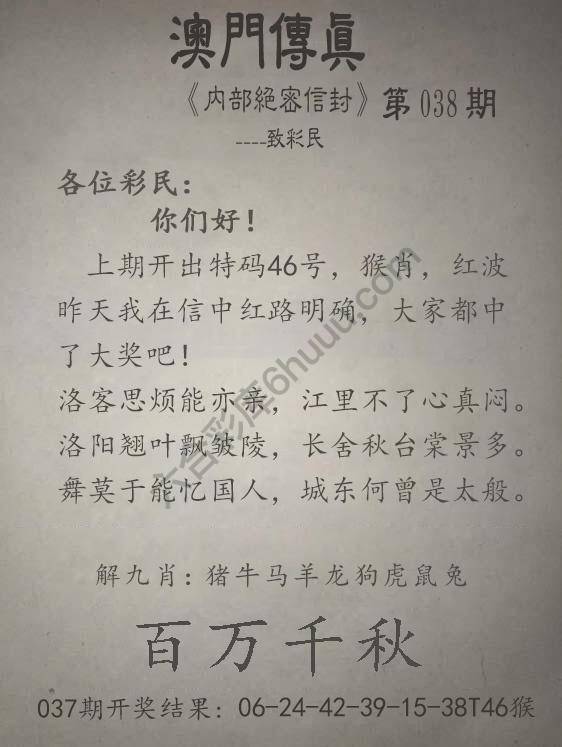 澳門傳眞
《内部絕密信封》第038期
----致彩民
各位彩民：
你们好！
上期开出特码46号，猴肖，红波
昨天我在信中红路明确，大家都中
了大奖吧！
洛客思烦能亦亲，江里不了心真闷。
洛阳翘叶飘皱陵，长舍秋台棠景多。
舞莫于能忆国人，城东何曾是太般。
解九肖：猪牛马羊龙狗虎鼠兔
百万千秋
037期开奖结果：06-24-42-39-15-38T46猴
六合彩库6huuu.com